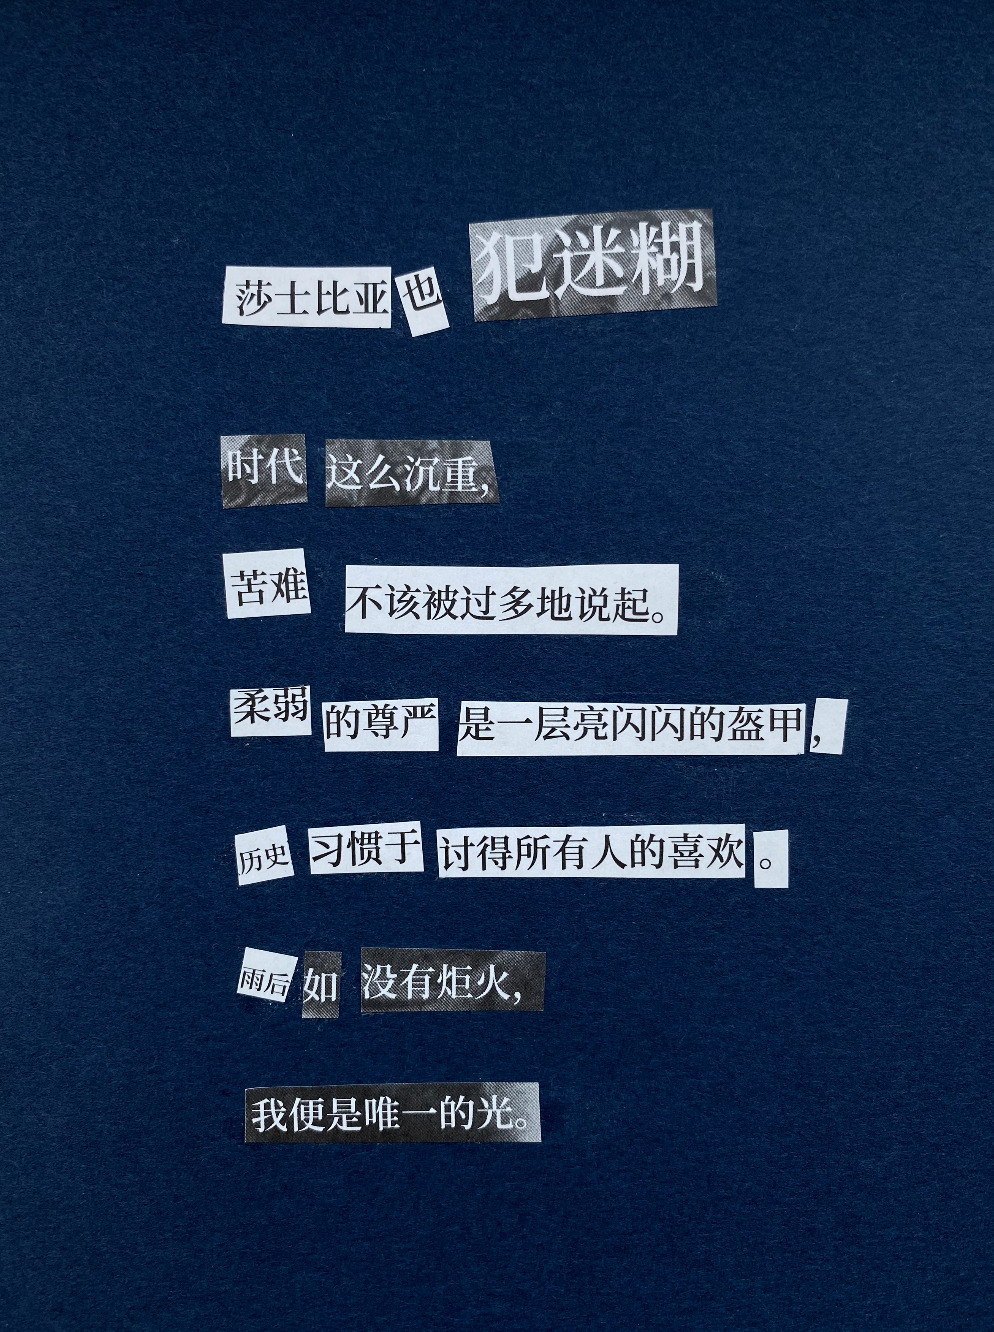 莎士比亚也犯迷糊
时代这么沉重，
苦难不该被过多地说起。
柔弱的尊严是一层亮闪闪的盔甲，
历史习惯于讨得所有人的喜欢。
雨后如没有炬火，
我便是唯一的光。